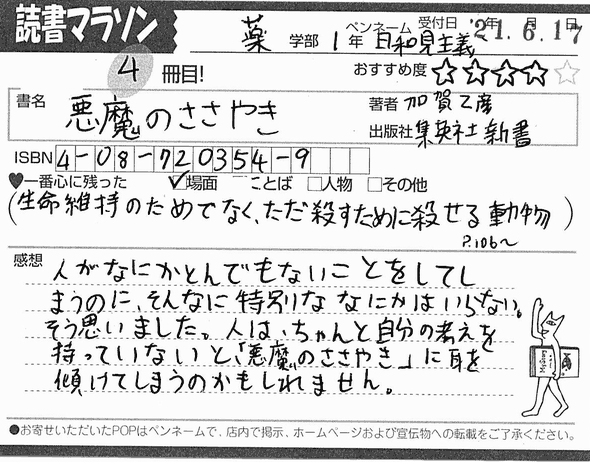 読書マラソン
4冊目!
薬 学部 1年 ペンネーム 日和見主義
受付日 '21年6月17日
おすすめ度 ★★★★☆
書名 悪魔のささやき
著者 加賀乙彦
出版社 集英社新書
ISBN 4-08-720354-9
♥一番心に残った ☑場面 □ことば □人物 □その他
(生命維持のためでなく、ただ殺すために殺せる動物)
P.106〜
感想
人がなにかとんでもないことをしてし
まうのに、そんなに特別ななにかはいらない。
そう思いました。人は、ちゃんと自分の考えを
持っていないと、「悪魔のささやき」に耳を
傾けてしまうのかもしれません。
●お寄せいただいたPOPはペンネームで、店内で掲示、ホームページおよび宣伝物への転載をご了承ください。